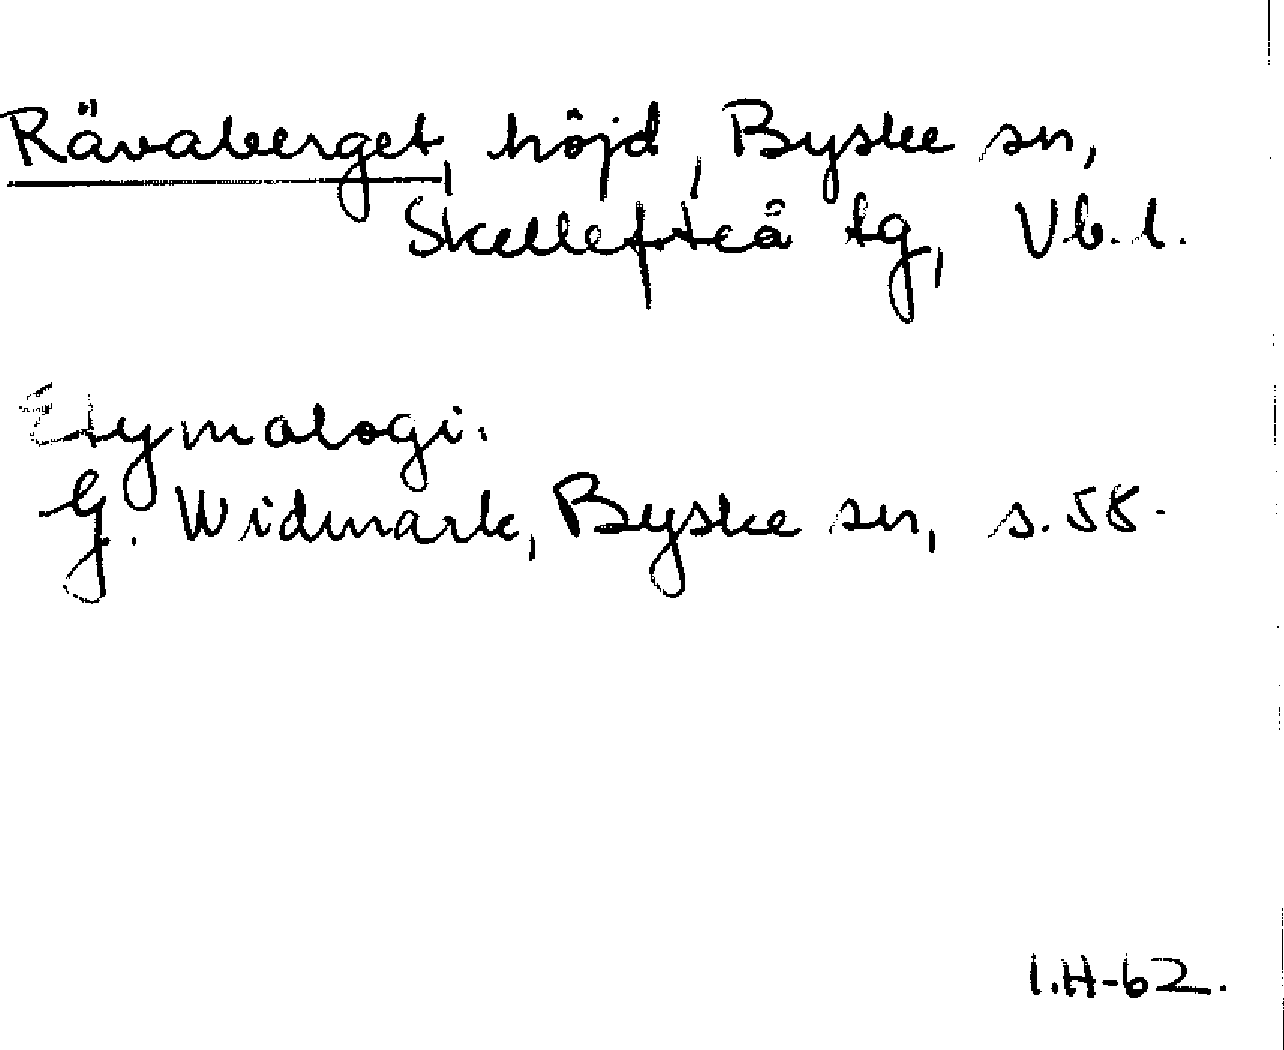 Rävaberget, höjd, Byske sn,
Skellefteå tg, Vb. l.
Etymologi.
G. Widmark, Byske sn, s. 58.
I.H-62.